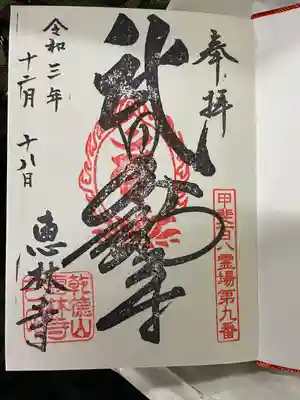 奉拝
甲斐百八霊場第九番
武田不動尊
令和三年
十二月 十八日
恵林寺
乾徳山
恵林寺